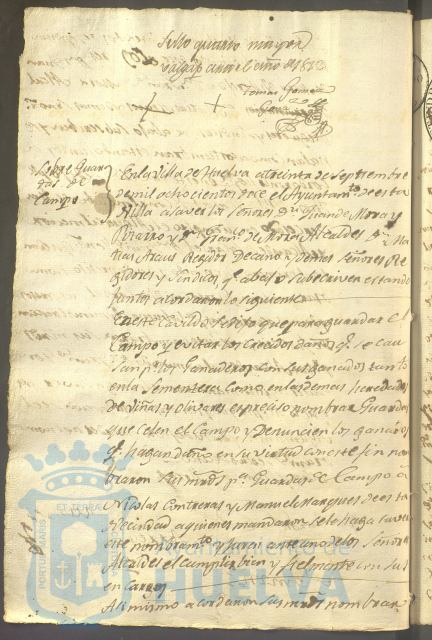 Sello quarto mayor
valga para el año de 1812
Tomas Gomez
Sobre Guar
das de
Campo
En la Villa de Huelva a treinta de Septiembre
de mil ochocientos doce el Ayuntamto. de esta
Villa a saver los Señores Dn. Juan de Mora y
Pizarro y Dn. Franco. de Mora Alcaldes Dn. Ma
tias Arcus Regidor Decano y demas Señores Re
gidores y Sindico, q. abajo subscriven estando
juntos acordaron lo siguiente
En este Cavildo se dijo que para guardar el
Campo y evitar los crecidos daños q. se cau
san pr. los Ganaderos con sus ganados tanto
en la Sementera como en las demas heredades
de viñas y olivares es preciso nombrar Guardas
que celen el Campo y Denuncien los ganados
q. hagan daño en su virtud con este fin nom
braron sus mrds. pa. Guardas de Campo a
Nicolas Contreras y Manuel Marques de esta
Vecindad a quienes mandaron se le haga saver
este nombramto. y juren ante uno de los Señores
Alcaldes el cumplir bien y fielmente con sus
encargos
Asi mismo acordaron sus mrds. nombrar
PORTUS MARIS
ET TERRAE
Ayuntamiento de
HUELVA